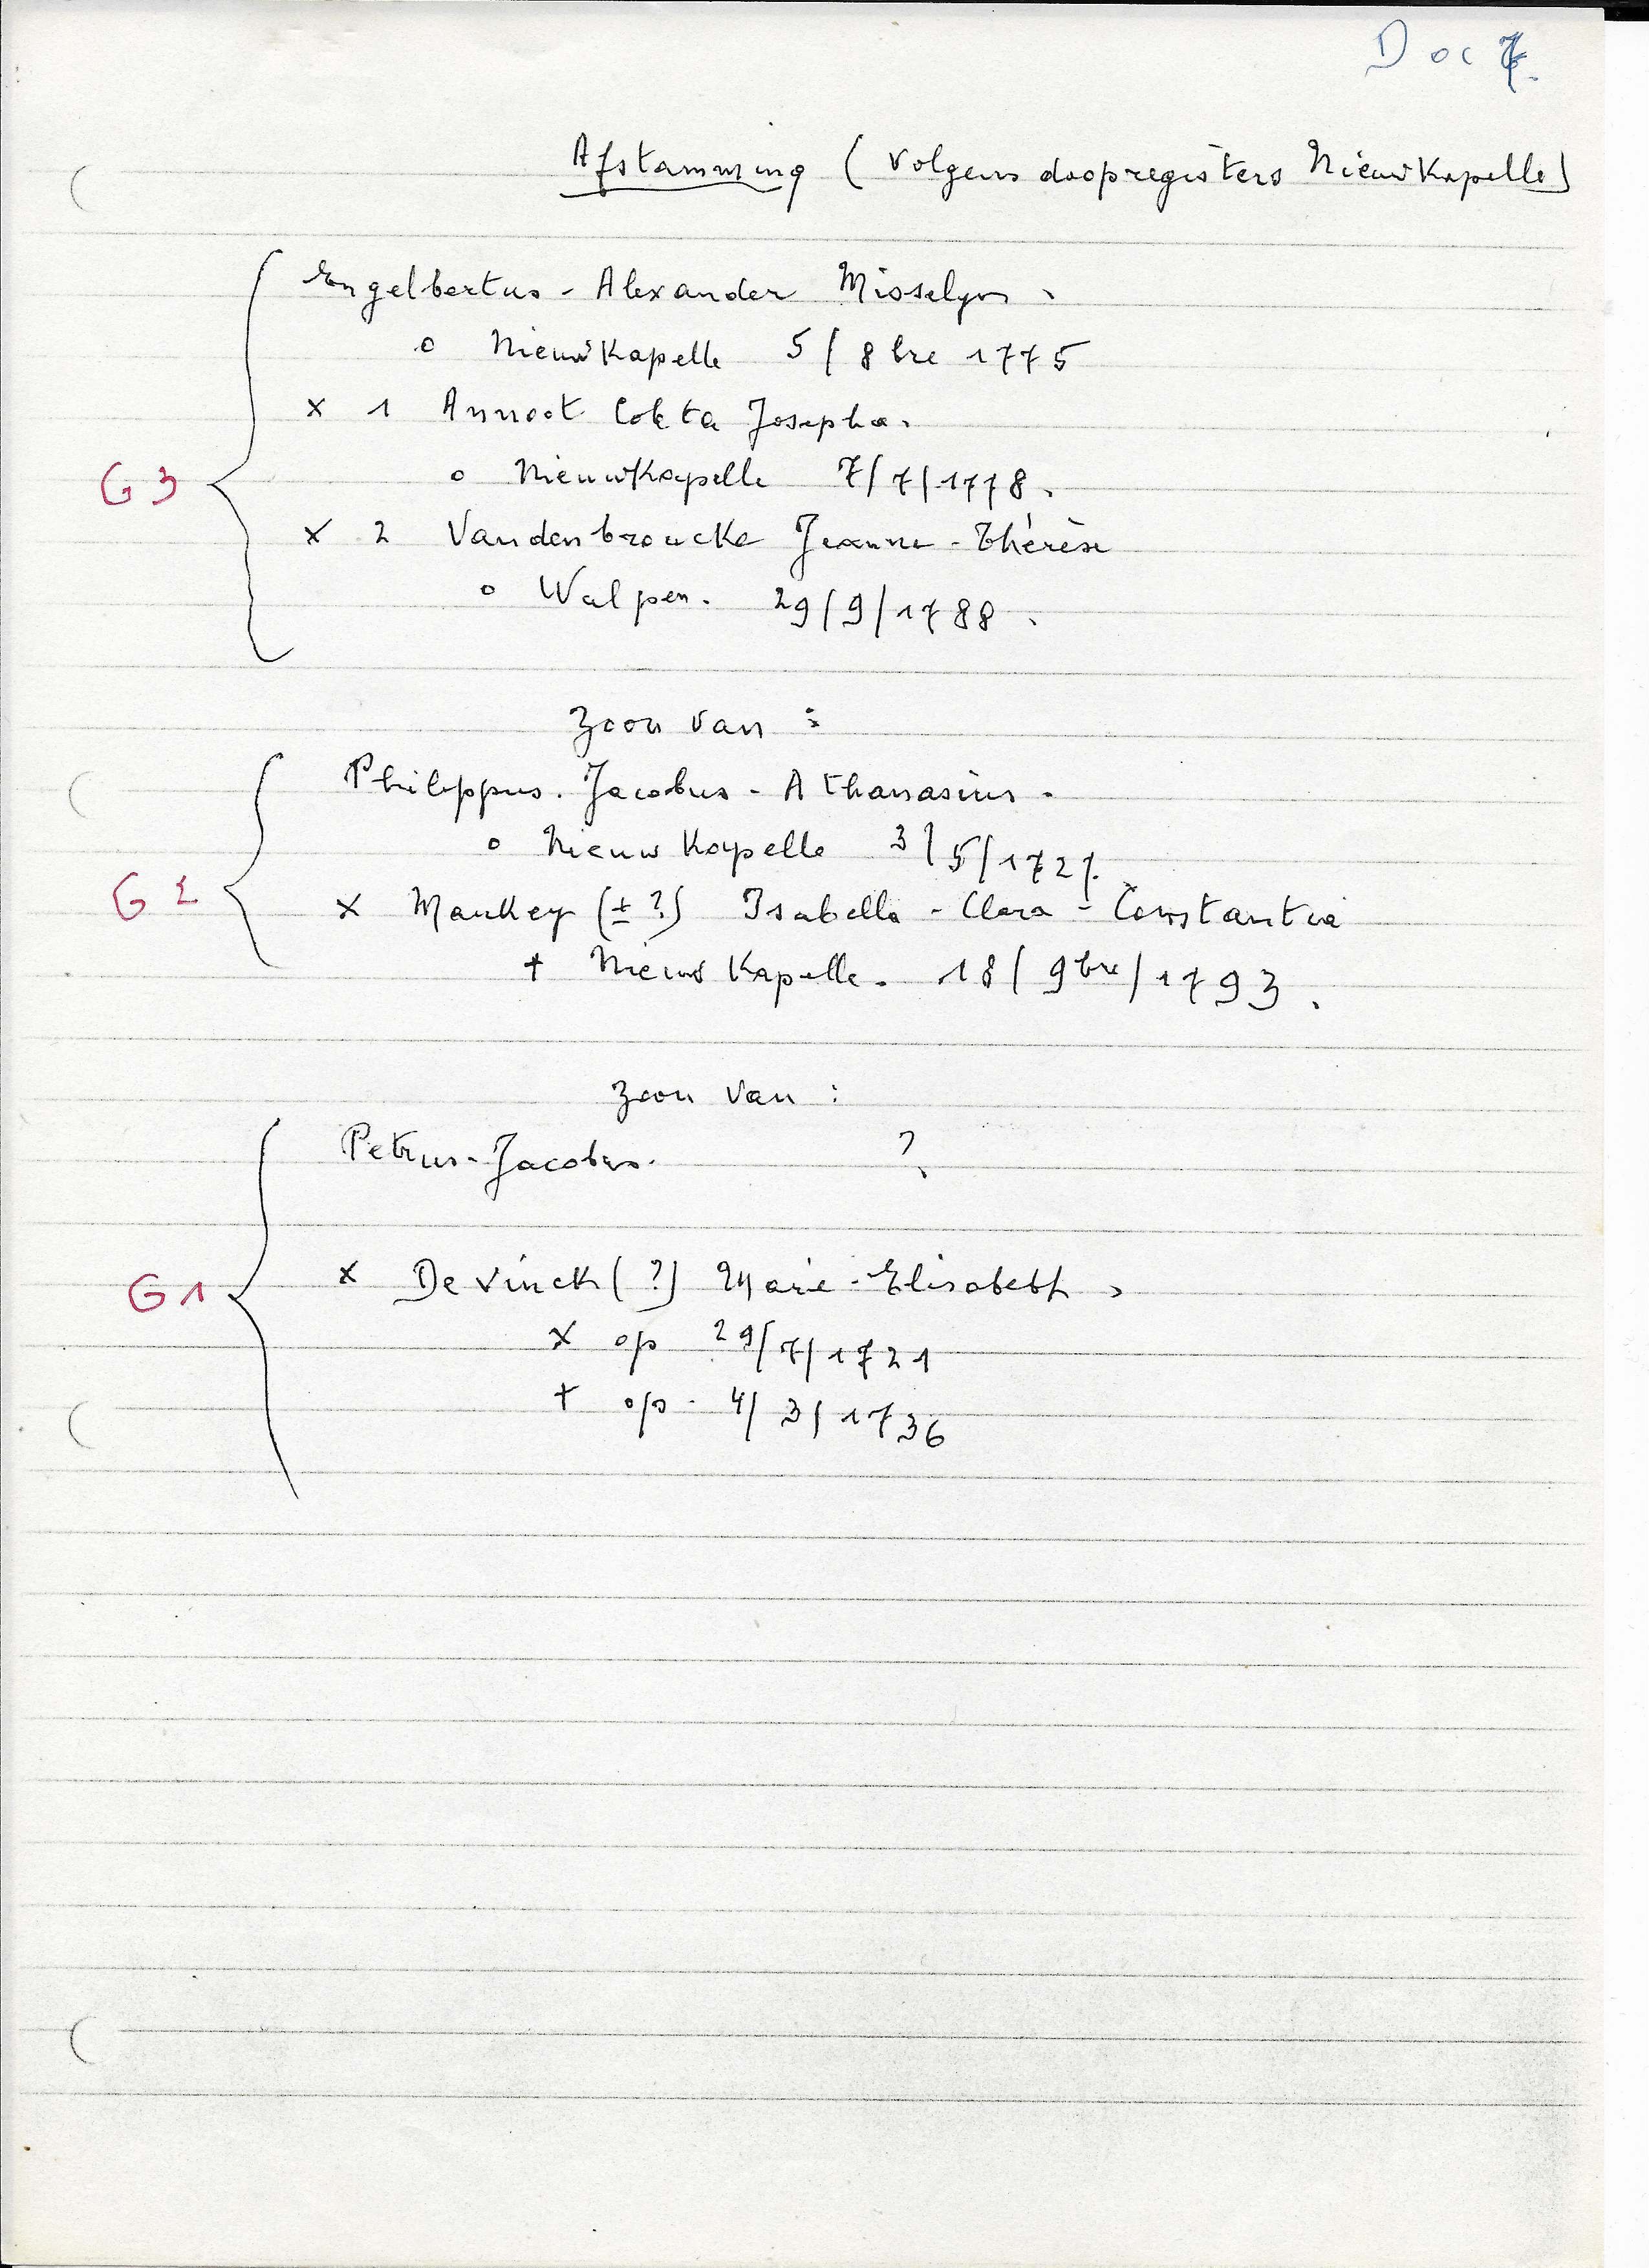 Doc 7.
Afstamming (volgens doopregisters Nieuwkapelle)
Engelbertus - Alexander Misselyn.
o Nieuwkapelle 5/8bre 1775
x 1 Annoot Coleta Josepha.
o Nieuwkapelle 7/7/1778.
G3
x 2 Vandenbroucke Jeanne - Thérèse
o Walpen. 29/9/1788.
zoon van :
Philippus. Jacobus - Athanasius.
o Nieuwkapelle 3/5/1727.
G2
x Markey (± ?) Isabella - Clara - Constantia
+ Nieuwkapelle. 18/9bre/1793.
zoon van :
Petrus - Jacobus. ?
G1
x De Vinck (?) Marie - Elisabeth,
x op 29/7/1721
+ op. 4/3/1736